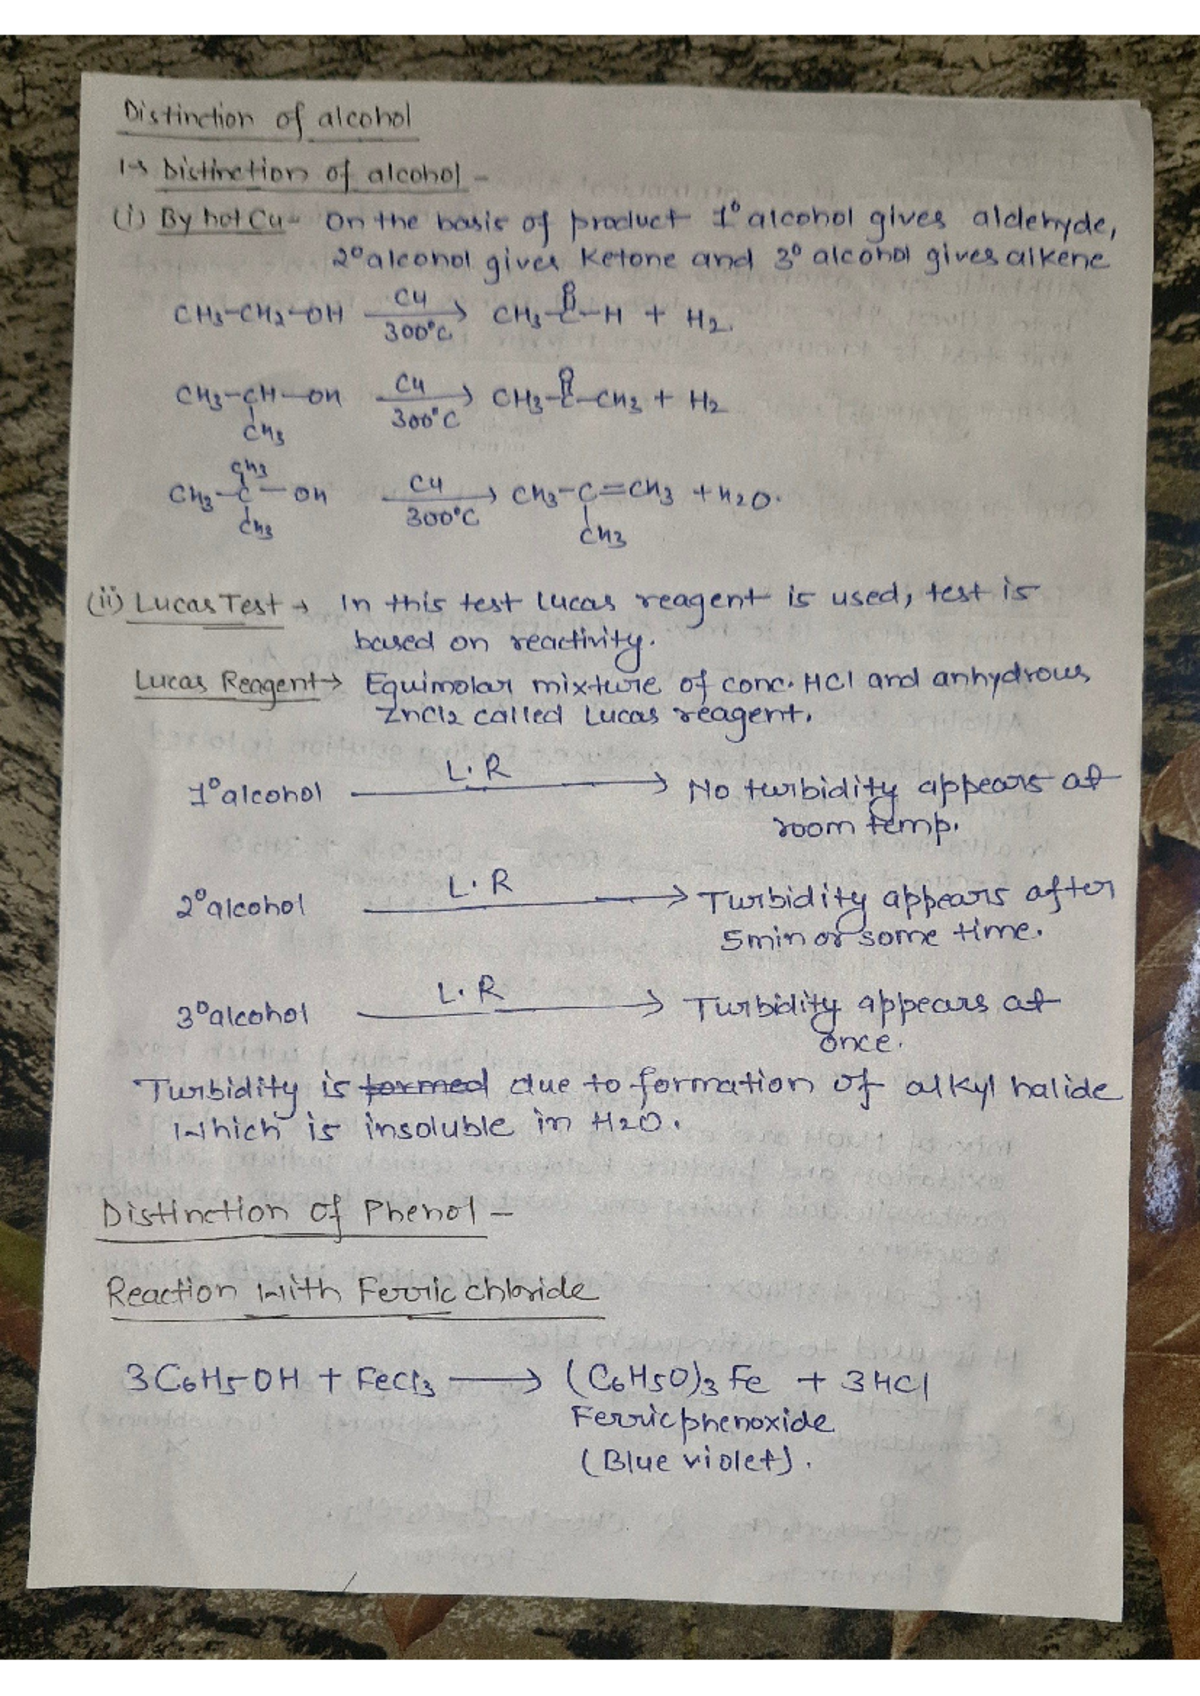 Distinction of alcohol
1→ Distinction of alcohol -
(i) By hot Cu - On the basis of product 1° alcohol gives aldehyde,
2° alcohol gives Ketone and 3° alcohol gives alkene
CH3-CH2-OH Cu 300°C → CH3-C-H + H2.
O
CH3-CH-OH Cu 300°C → CH3-C-CH3 + H2
O
CH3
CH3
CH3-C-OH Cu 300°C → CH3-C=CH3 + H2O.
CH3 CH3
(ii) Lucas Test → In this test lucas reagent is used, test is
based on reactivity.
Lucas Reagent → Equimolar mixture of conc. HCl and anhydrous
ZnCl2 called Lucas reagent.
1° alcohol L.R → No turbidity appears at
room temp.
2° alcohol L.R → Turbidity appears after
5min or some time.
3° alcohol L.R → Turbidity appears at
once.
Turbidity is formed due to formation of alkyl halide
which is insoluble in H2O.
Distinction of Phenol -
Reaction with Ferric chloride
3C6H5OH + FeCl3 → (C6H5O)3 Fe + 3HCl
Ferric phenoxide
(Blue violet).